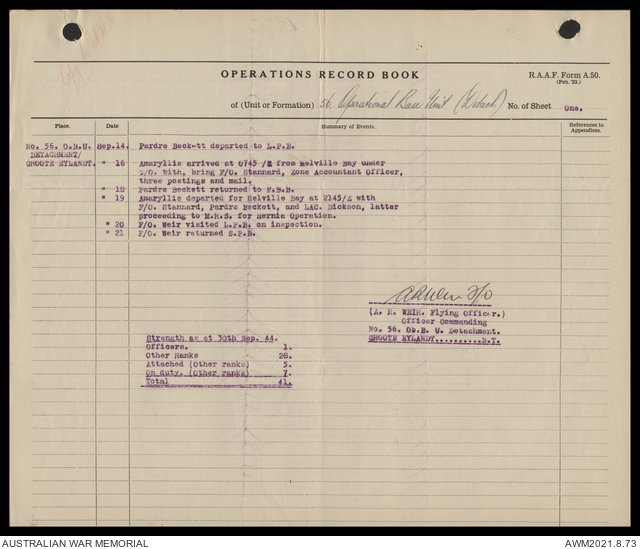 OPERATIONS RECORD BOOK
R.A.A.F. Form A.50.
(Feb. '33.)
of (Unit or Formation) 56 Operational Base Unit (Detach) No. of Sheet One.
Place. Date Summary of Events. References to Appendices.
No. 56. O.B.U. Sep.14. Pardre Beckett departed to L.P.B.
DETACHMENT/
GROOTE EYLANDT. " 16 Amaryllis arrived at 0745 /Z from Melville Bay under
S/O. With, bring F/O. Stannard, Zone Accountant Officer,
three postings and mail.
" 18 Pardre Beckett returned to F.B.B.
" 19 Amaryllis departed for Melville Bay at 2145/Z with
F/O. Stannard, Pardre Beckett, and LAC. Dickson, latter
proceeding to M.R.S. for Hernia Operation.
" 20 F/O. Weir visited L.P.B. on inspection.
" 21 F/O. Weir returned S.P.B.
ARWeir F/O
(A. R. WEIR. Flying Officer.)
Officer Commanding
No. 56. Ob.B. U. Detachment.
GROOTE EYLANDT..........N.T.
Strength as at 30th Sep. 44.
Officers. 1.
Other Ranks 28.
Attached (Other ranks) 5.
On duty. (Other ranks) 7.
Total 41.
AUSTRALIAN WAR MEMORIAL
AWM2021.8.73